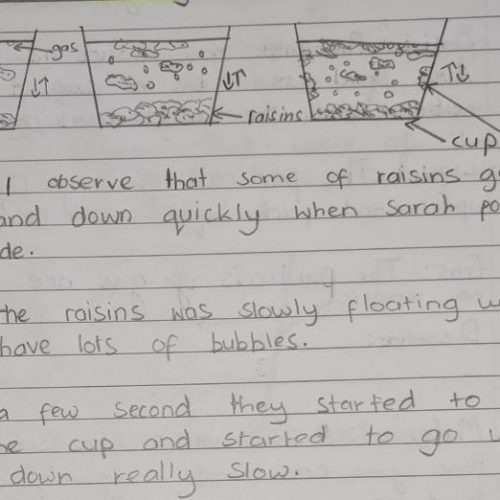 gas
raisins
cup
I observe that some of raisins g
and down quickly when Sarah po
de.
the raisins was slowly floating w
have lots of bubbles.
a few second they started to
he cup and started to go u
down really slow.